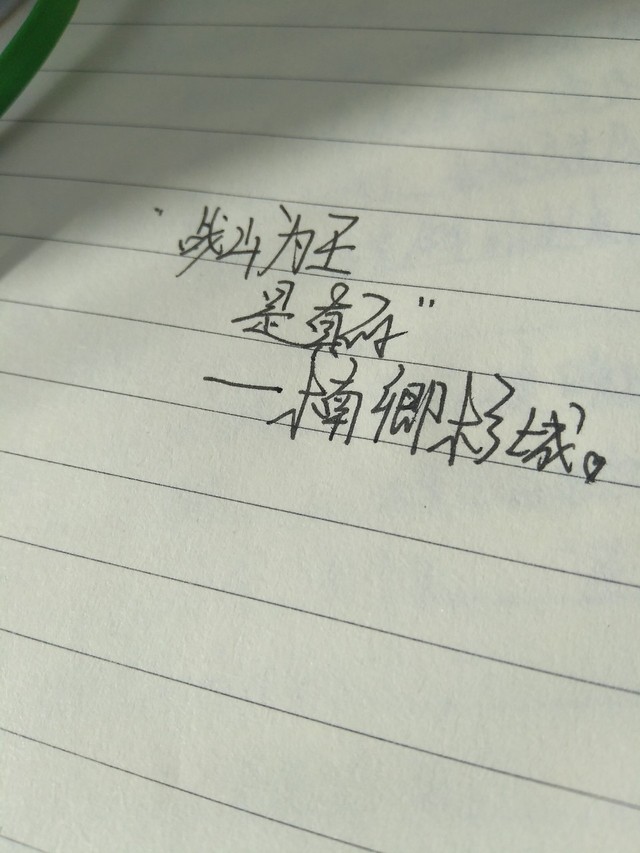 "战斗为王
是真的"
——楠卿杉城。